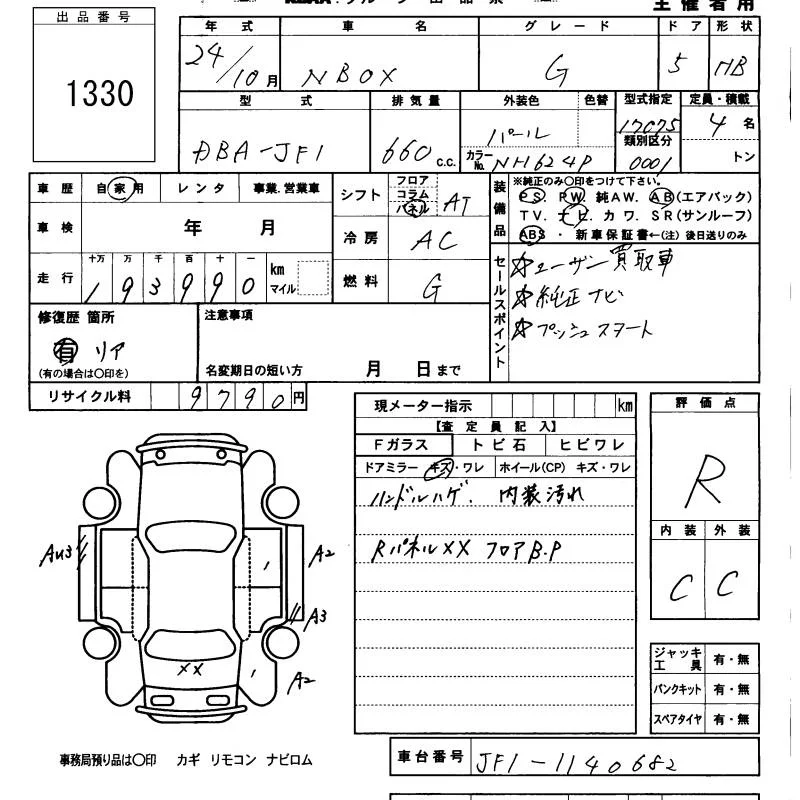 主催者用
出品番号
1330
年式 車名 グレード ドア 形状
24/10月 NBOX G 5 HB
型式 排気量 外装色 色替 型式指定 定員・積載
DBA-JF1 660 c.c. パール 17075 4名
カラーNo. NH624P 類別区分 0001 トン
車歴 自家用 レンタ 事業.営業車
車検 年 月
走行 十万 万 千 百 十 一 km マイル
193990
シフト フロア コラム パネル AT
冷房 AC
燃料 G
装備品
※純正のみ○印をつけて下さい。
PS. PW. 純AW. AB(エアバック)
TV. ナビ. カワ. SR(サンルーフ)
ABS ・ 新車保証書←(注) 後日送りのみ
セールスポイント
☆ユーザー買取車
☆純正ナビ
☆プッシュスタート
修復歴 箇所
有 リア
(有の場合は○印を)
注意事項
名変期日の短い方 月 日まで
リサイクル料 9790円
現メーター指示 km
【査定員記入】
Fガラス トビ石 ヒビワレ
ドアミラー キズ・ワレ ホイール(CP) キズ・ワレ
ハンドルハゲ. 内装汚れ
Rパネル×× フロアB.P
評価点
R
内装 外装
C C
AU3 A2
A3
A2
××
ジャッキ工具 有・無
パンクキット 有・無
スペアタイヤ 有・無
事務局預り品は○印 カギ リモコン ナビロム
車台番号 JF1-1140682